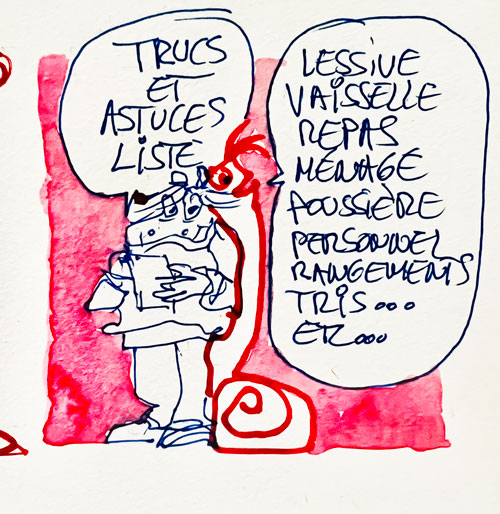 TRUCS
ET
ASTUCES
LISTE
LESSIVE
VAISSELLE
REPAS
MÉNAGE
POUSSIÈRE
PERSONNEL
RANGEMENTS
TRIS...
ET...